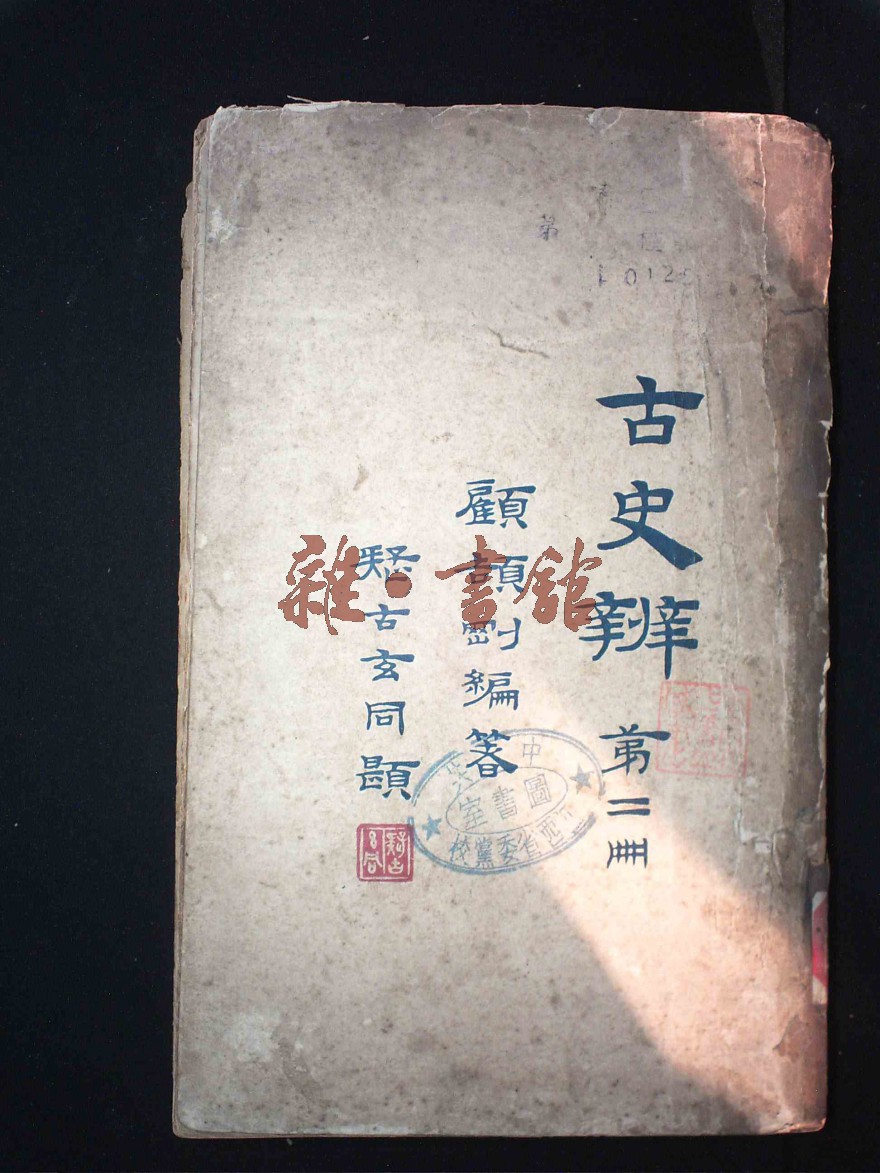 古史辨 第二冊
顧頡剛編著
疑古玄同題
雜·書館
圖書室
省委黨校
第
0125